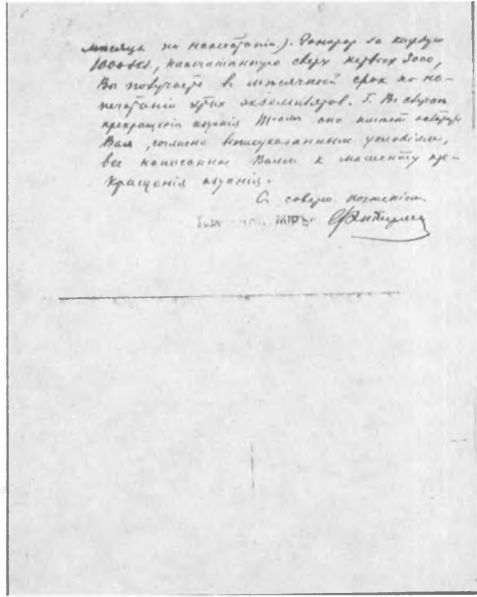 месяца по напечатаніи). Гонорар за каждую
1000 экз., напечатанную сверх первых 3000,
Вы получаете в месячный срок по на-
печатаніи этих экземпляров. 5. В случае
прекращенія изданія
Вам, согласно вышеуказанным условіям,
все написанное Вами к моменту пре-
кращенія изданія.
С соверш. почтеніем